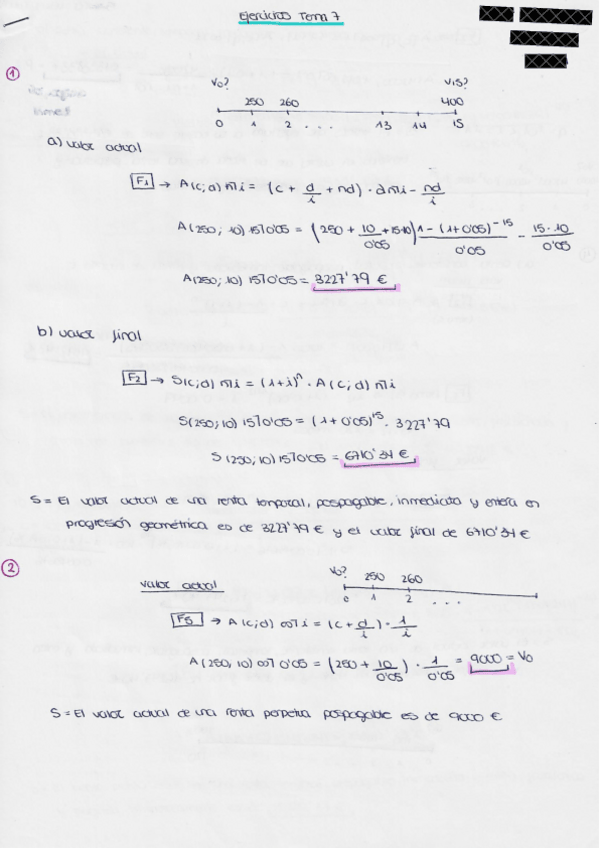 Ejercicios Tema 7
1
V0? V15?
250 260 400
0 1 2 ... 13 14 15
a) valor actual
F1 → A(c;d) n̅|i = (c + d/i + nd) · a n̅|i - nd/i
A(250; 10) 15̅|0'05 = (250 + 10/0'05 + 15·10) 1 - (1+0'05)^-15/0'05 - 15·10/0'05
A(250; 10) 15̅|0'05 = 3227'79 €
b) valor final
F2 → S(c;d) n̅|i = (1+i)^n · A(c;d) n̅|i
S(250;10) 15̅|0'05 = (1+0'05)^15 · 3227'79
S(250;10) 15̅|0'05 = 6710'34 €
S = El valor actual de una renta temporal, pospagable, inmediata y entera en
progresión geométrica es de 3227'79 € y el valor final de 6710'34 €
2
V0? 250 260
valor actual 0 1 2 ...
F5 → A(c;d) ∞̅|i = (c + d/i) · 1/i
A(250, 10) ∞̅|0'05 = (250 + 10/0'05) · 1/0'05 = 9000 = V0
S = El valor actual de una renta perpetua pospagable es de 9000 €